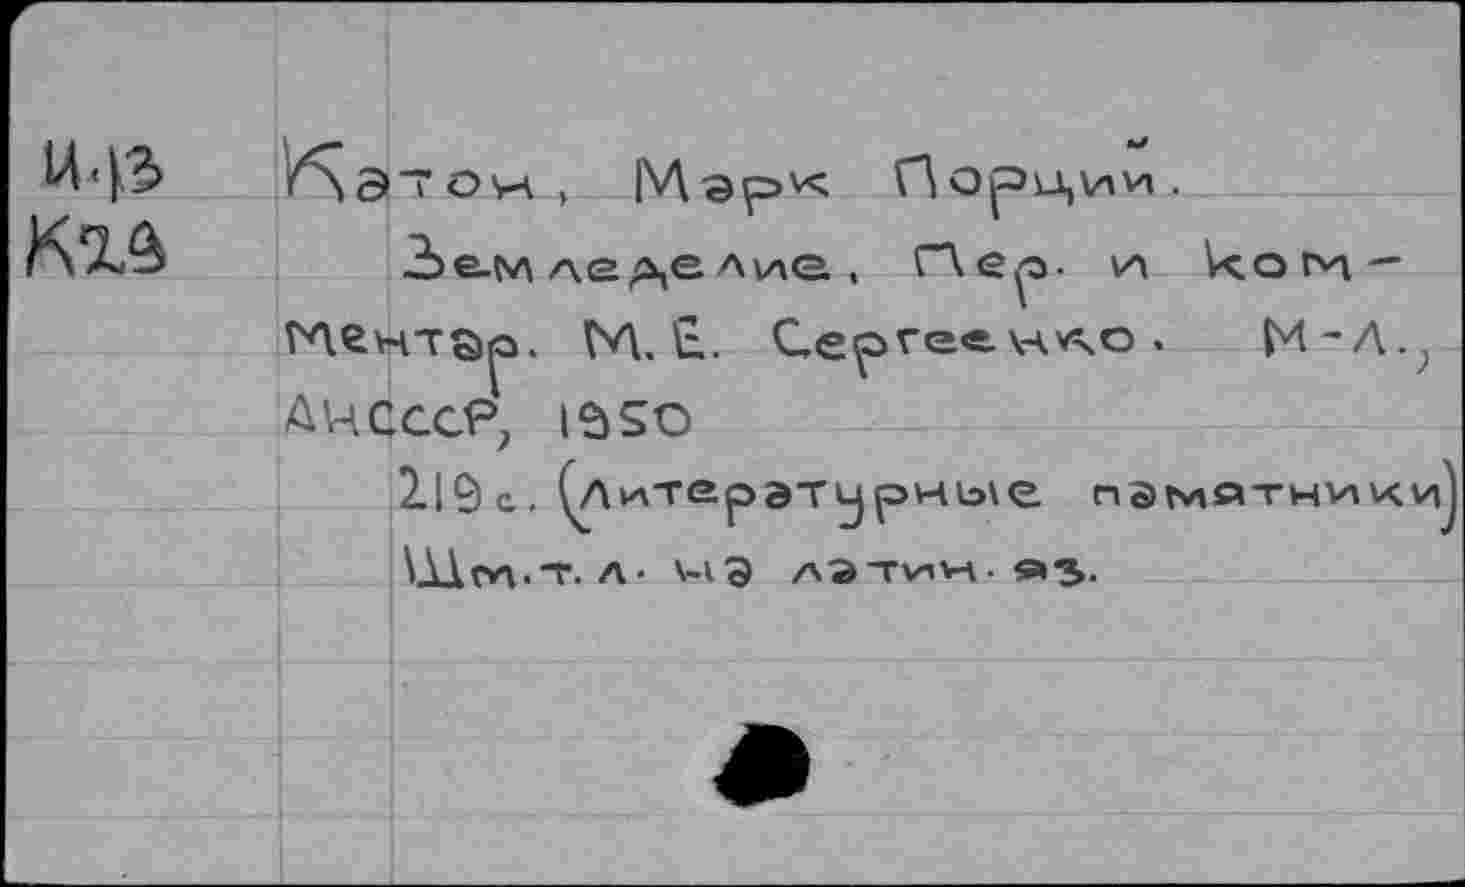 И.13 Катон, Марк Порций.
К29 Земледелие. Пер. и ком-
ментар. М.Е. Сергеенко. М-Л.,
АНСССР, 1950
219с. (Литературные памятники)
Шм.т.л. на латин. яз.